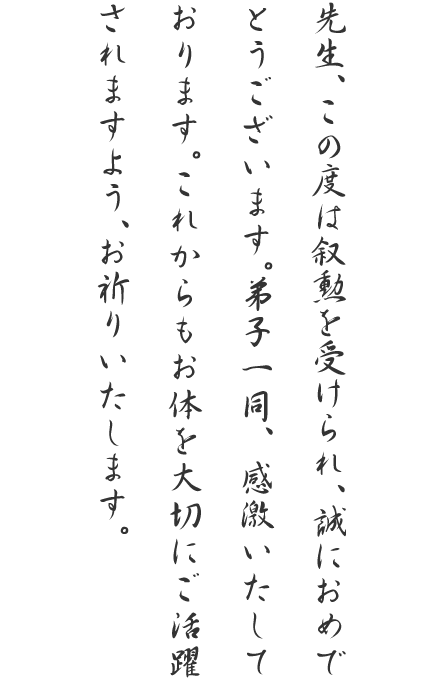 先生、この度は叙勲を受けられ、誠におめで
とうございます。弟子一同、感激いたして
おります。これからもお体を大切にご活躍
されますよう、お祈りいたします。